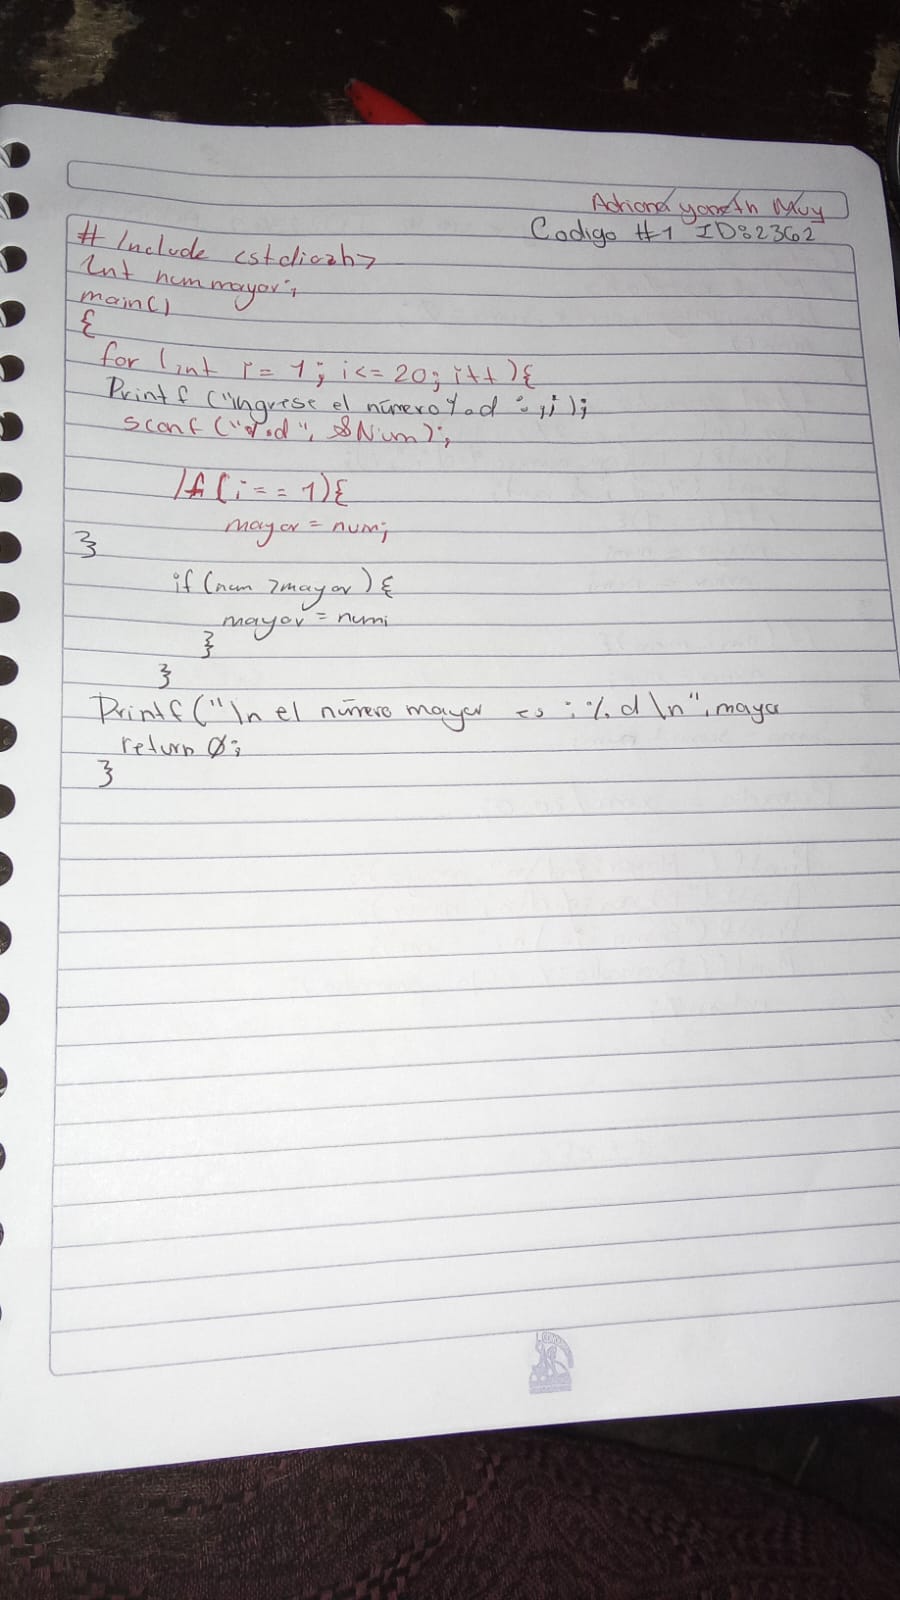 Adriana yaneth Muy
Codigo #1 ID:82362
# Include <stdio.h>
Int num mayor;
main()
{
for (int i= 1; i<= 20; i++){
Printf ("ingrese el número %d :,i);
scanf ("%d", &Num);
If (i == 1){
mayor = num;
}
if (num >mayor) {
mayor = num;
}
}
Printf("\n el número mayor es : %d \n", mayor
return 0;
}